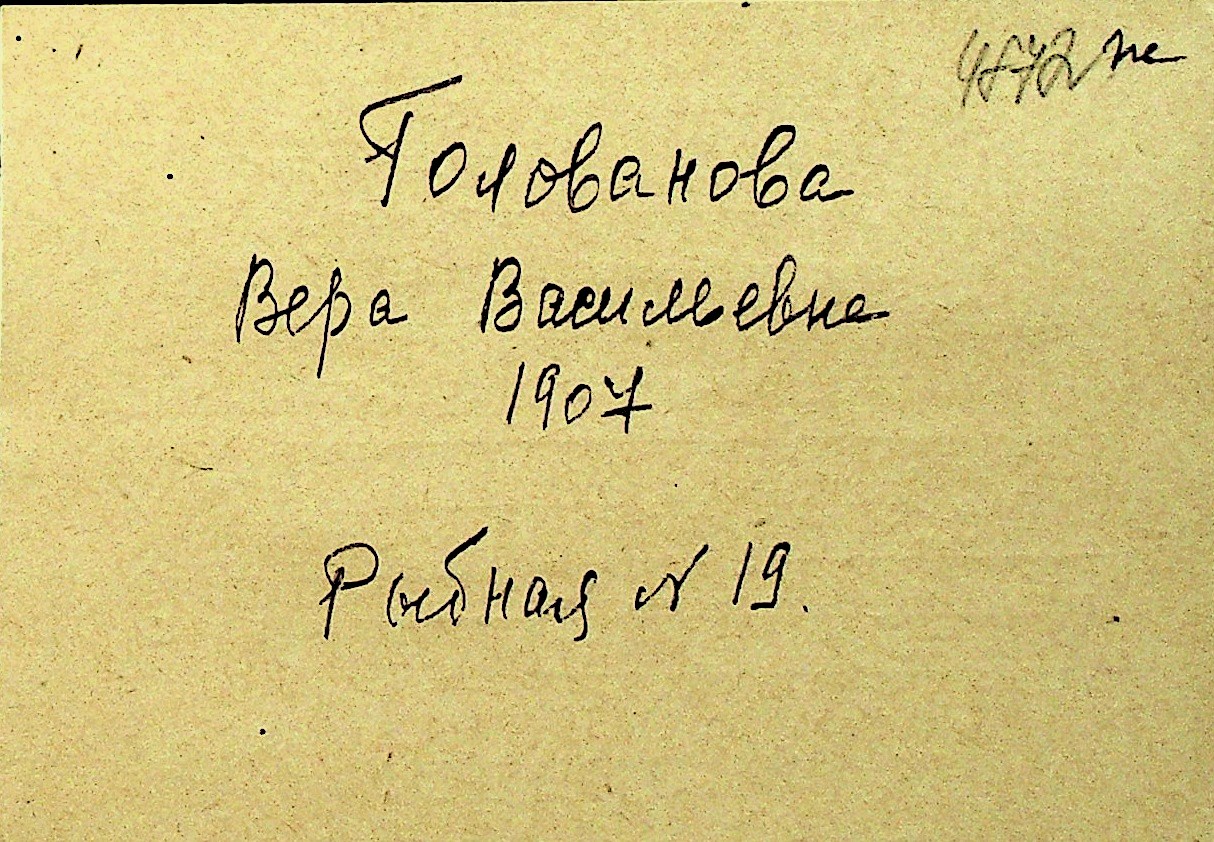 4872 пе
Голованова
Вера Васильевна
1907
Рыбная № 19.